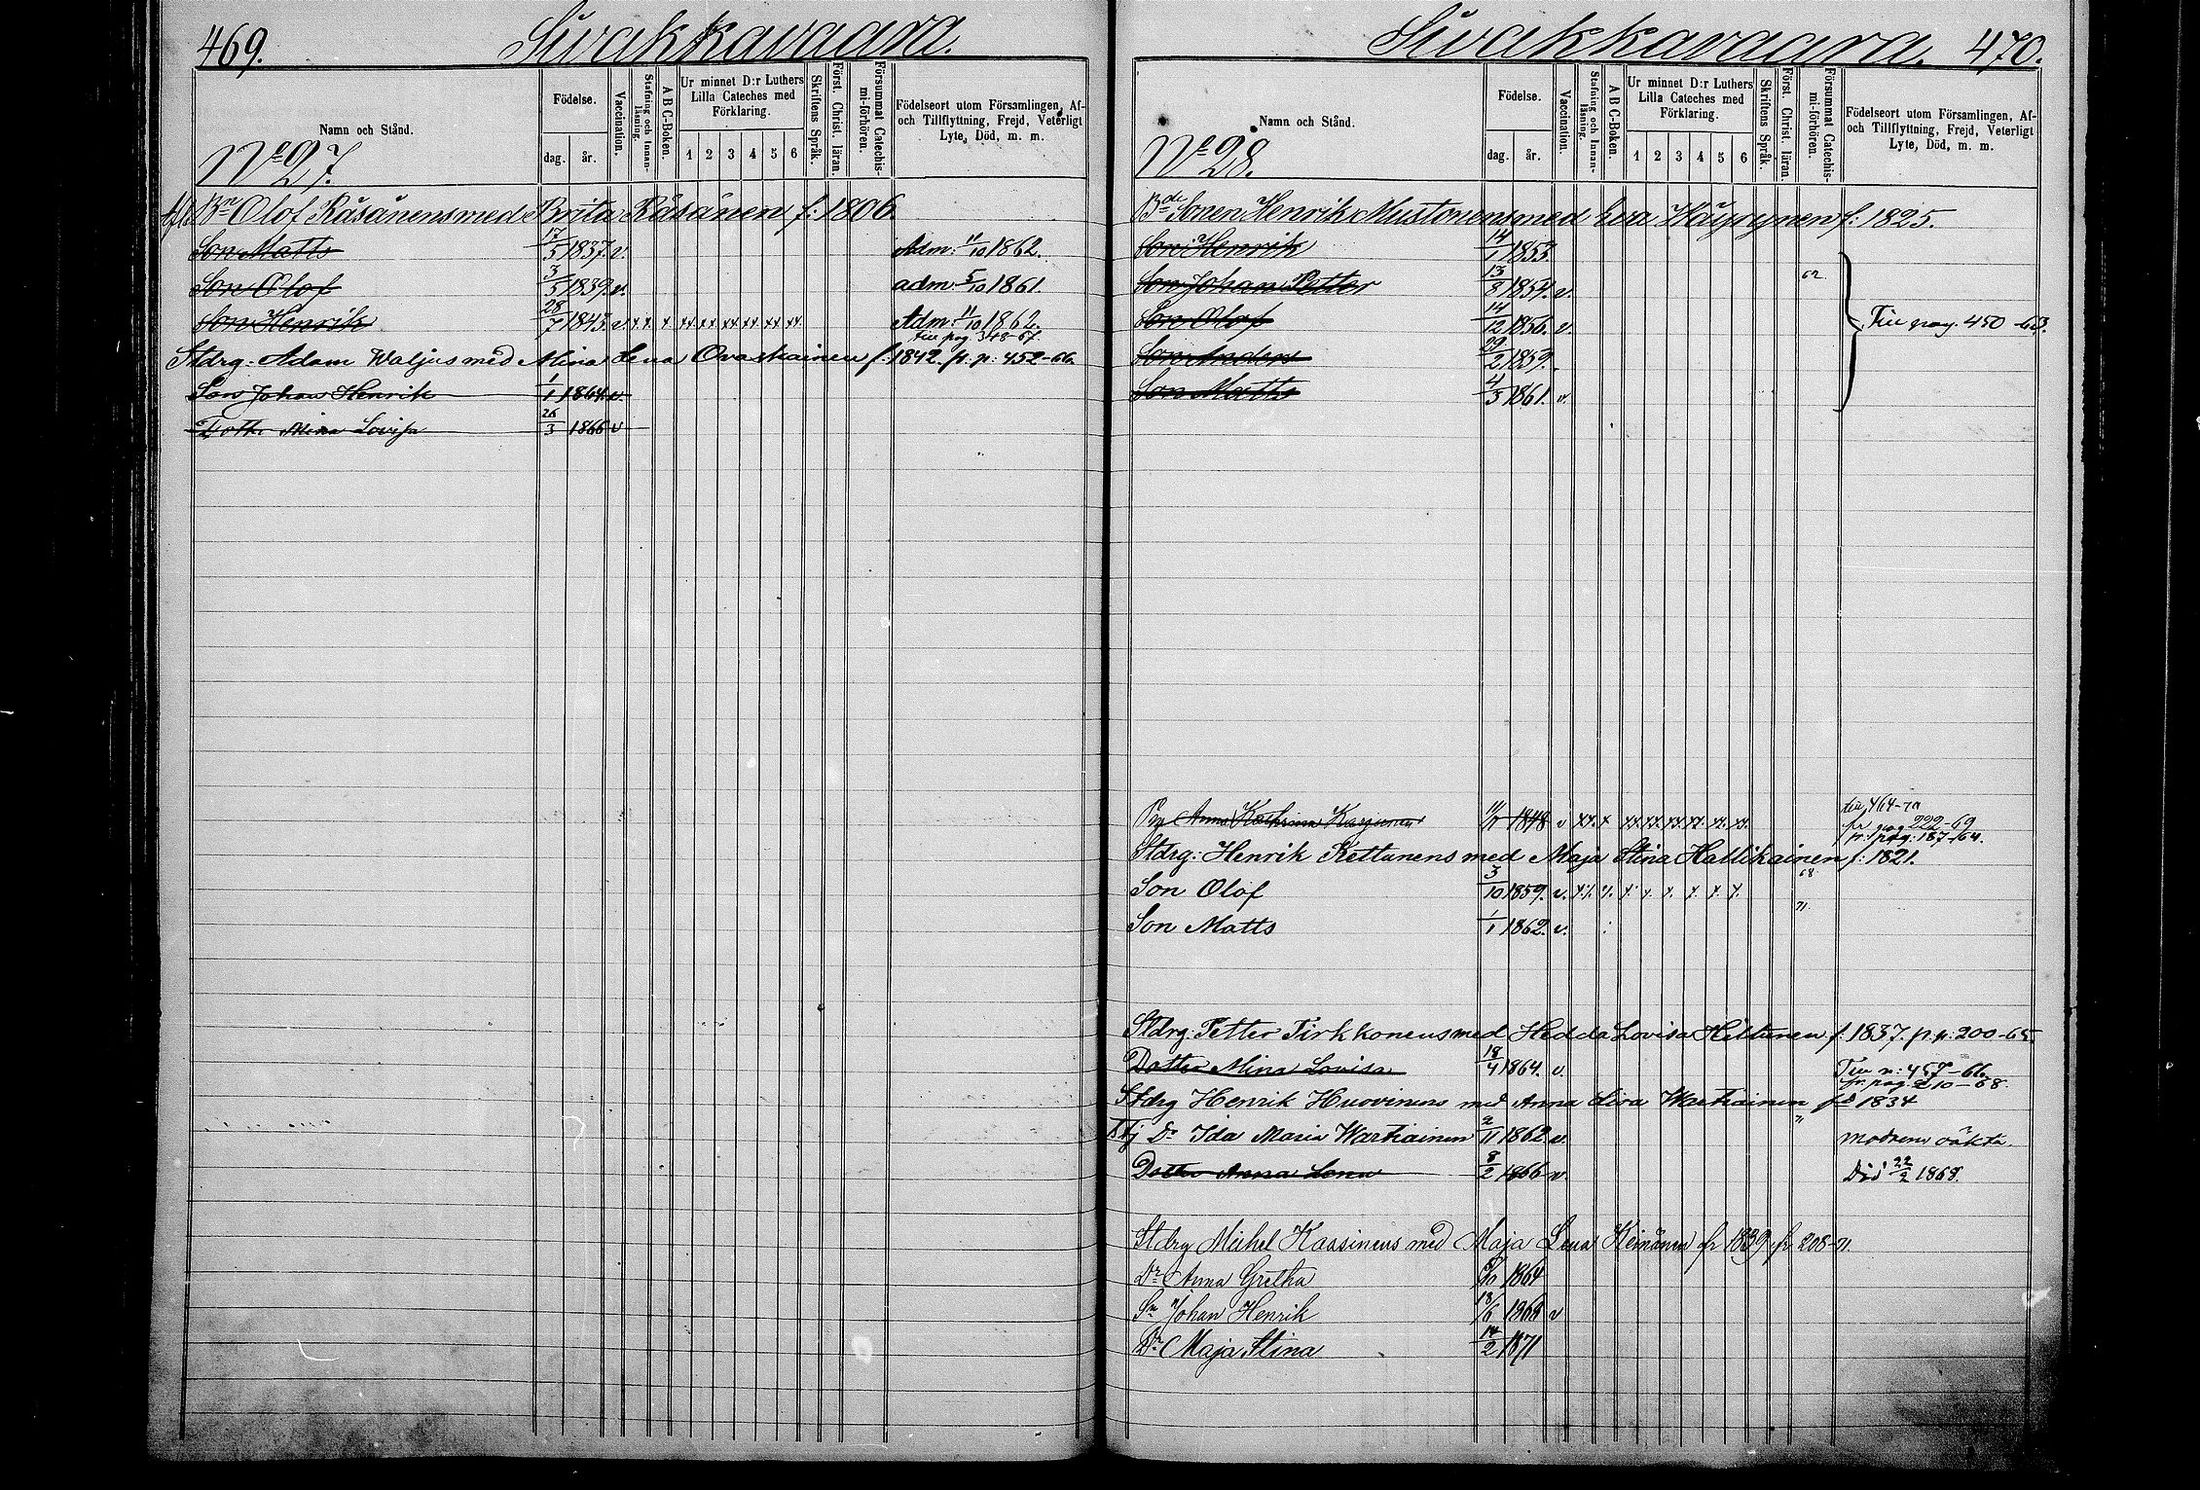 469. Sivakkavaara.
Namn och Stånd.
Födelse.
dag. år.
Vaccination.
Stafning och Innanläsning.
A B C-Boken.
Ur minnet D:r Luthers Lilla Cateches med Förklaring.
1 2 3 4 5 6
Skriftens Språk.
Först. Christ. läran.
Försummat Catechismi-förhören.
Födelseort utom Församlingen, Af- och Tillflyttning, Frejd, Veterligt Lyte, Död, m. m.
No 27.
Bn Olof Räsänens med Brita Räsänen f: 1806
Son Matts 17/5 1837. v. Adm: 11/10 1862.
Son Olof 3/5 1839. v. adm: 5/10 1861.
Son Henrik 28/7 1845. v xx x xx xx xx xx xx xx Adm: 11/10 1862.
Till pag 348-67.
Stdrg: Adam Waljus med Mina Lena Ovaskainen f. 1842. fr. p: 452-66.
Son Johan Henrik 1/1 1864. v.
Dotter Mina Lovisa 26/3 1866 v
Sivakkavaara. 470.
Namn och Stånd.
Födelse.
dag. år.
Vaccination.
Stafning och Innanläsning.
A B C-Boken.
Ur minnet D:r Luthers Lilla Cateches med Förklaring.
1 2 3 4 5 6
Skriftens Språk.
Först. Christ. läran.
Försummat Catechismi-förhören.
Födelseort utom Församlingen, Af- och Tillflyttning, Frejd, Veterligt Lyte, Död, m. m.
No 28.
Bde Sonen Henrik Mustonens med Eva Häyrynen f: 1825.
Son Henrik 14/1 1853.
Son Johan Petter 13/8 1854. v. 62.
Son Olof 14/12 1856. v. Till pag. 450-63.
Son Anders 29/2 1859.
Son Matts 4/3 1861. v.
till 464-70
Anna Kathrina Karjunen 1848 v xx x xx xx xx xx xx xx fr pag 222-69
fr: pag: 187-64.
Stdrg: Henrik Kettunens med Maja Stina Hallikainen f: 1821.
Son Olof 3/10 1859. v. 68.
Son Matts 1/1 1862. v. 71.
Stdrg: Petter Tirkkonens med Hedda Lovisa Hiltunen f. 1837. fr. p: 200-65.
Dotter Mina Lovisa 18/4 1864. v. Till n: 457-66.
fr. pag. 210-68.
Stdrg Henrik Huovinens med Anna Lisa Wartiainen fd 1834
Dr Ida Maria Wartiainen 2/11 1862 v. modrens oäkta
Dotter Anna Lena 8/2 1866 v. Död 22/2 1868.
Stdrg Michel Kaasinens med Maja Lena Keinänen fr 1839 fr 208-71.
Dr Anna Gretha 1864
Sn Johan Henrik 18/6 1868 v
Dr Maja Stina 14/2 1871